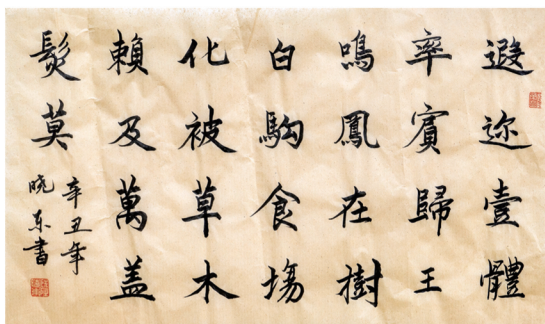 遐迩壹體
率賓歸王
鳴鳳在樹
白駒食場
化被草木
賴及萬盖
髮莫
辛丑年
晓东書